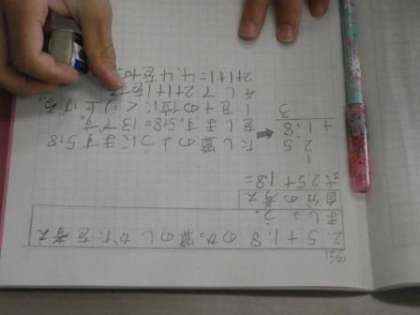 2.5+1.8のひっ算のしかたを考え
ましょう。
自分の考え
式2.5+1.8=
1
2.5
+1.8
3
たし算のようにまず5と8
をたします。5+8=13です。
1を十の位にくり上げる。
そして2+1+1を
2+1+1=4.4を